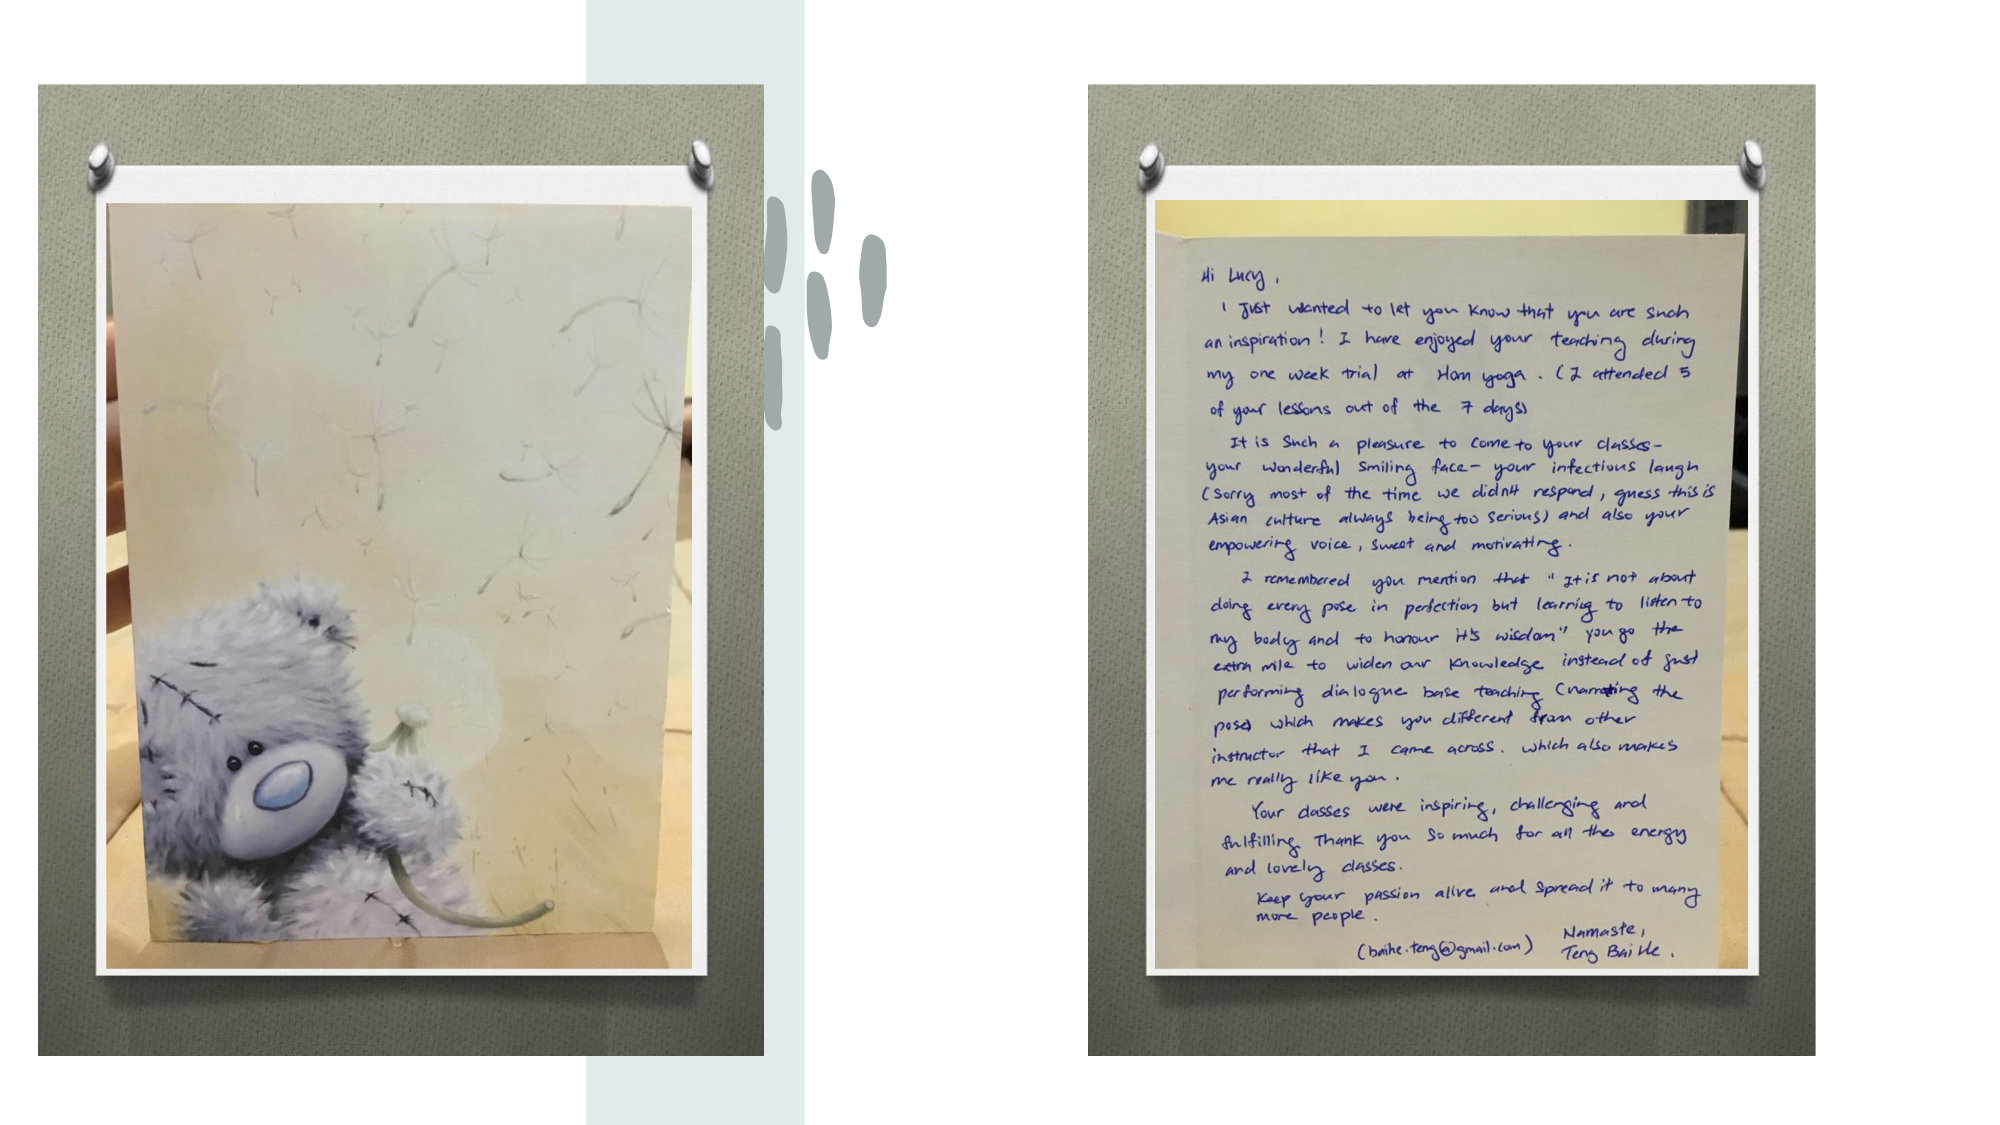 Hi Lucy,
I Just wanted to let you know that you are such
an inspiration! I have enjoyed your teaching during
my one week trial at Hom yoga. (I attended 5
of your lessons out of the 7 days)
It is such a pleasure to come to your classes-
your wonderful smiling face- your infectious laugh
(Sorry most of the time we didn't respond, guess this is
Asian culture always being too serious) and also your
empowering voice, sweet and motivating.
I remembered you mention that "It is not about
doing every pose in perfection but learning to listen to
my body and to honour it's wisdom" you go the
extra mile to widen our knowledge instead of just
performing dialogue base teaching (narrating the
pose) which makes you different from other
instructor that I came across. which also makes
me really like you.
Your classes were inspiring, challenging and
fulfilling. Thank you so much for all the energy
and lovely classes.
Keep your passion alive and spread it to many
more people.
Namaste,
(baihe.teng@gmail.com) Teng BaiHe.